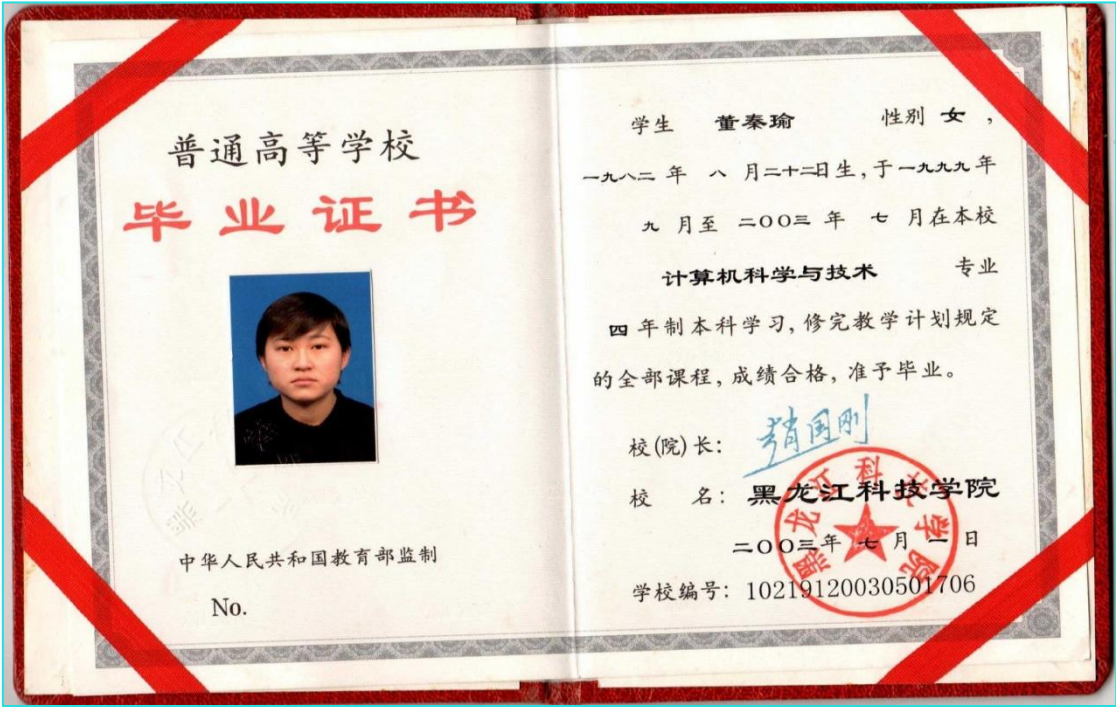 普通高等学校
毕业证书
中华人民共和国教育部监制
No.
学生 董秦瑜 性别 女,
一九八二 年 八 月二十二日生,于一九九九年
九 月至 二〇〇三 年 七 月在本校
计算机科学与技术 专业
四 年制本科学习,修完教学计划规定
的全部课程,成绩合格,准予毕业。
校(院)长: 赵国刚
校 名: 黑龙江科技学院
二〇〇三年 七 月 一 日
学校编号: 102191200305017​06
黑龙江科技学院